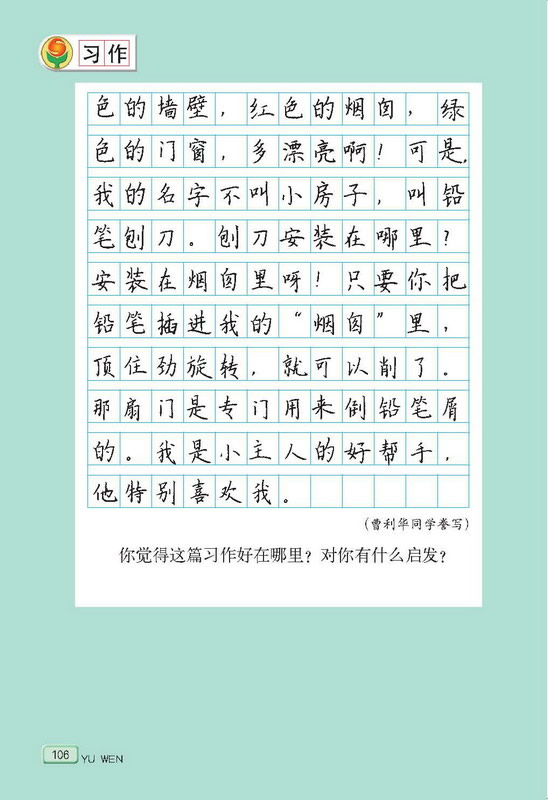 习作
色的墙壁，红色的烟囱，绿
色的门窗，多漂亮啊！可是，
我的名字不叫小房子，叫铅
笔刨刀。刨刀安装在哪里？
安装在烟囱里呀！只要你把
铅笔插进我的“烟囱”里，
顶住劲旋转，就可以削了。
那扇门是专门用来倒铅笔屑
的。我是小主人的好帮手，
他特别喜欢我。
（曹利华同学誊写）
你觉得这篇习作好在哪里？对你有什么启发？
106 YU WEN